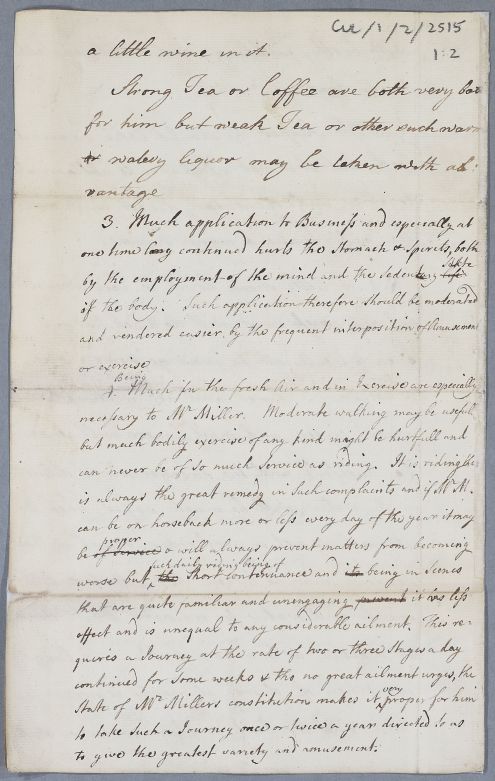 CUL/1/2/2515
1:2
a little wine in it.
Strong Tea or Coffee are both very bad
for him but weak Tea or other such warm
or watery liquor may be taken with ad:
vantage
3. Much application to Business and especially at
one time long continued hurts the Stomach & Spirits, both
by the employment of the mind and the Sedentary State life
of the body. Such application therefore should be moderated
and rendered easier by the frequent interposition of Amusement
or exercise
Being
4. Much in the fresh Air and in Exercise are especially
necessary to Mr Miller. Moderate walking may be usefull
but much bodily exercise of any kind might be hurtfull and
can never be of so much Service as riding. It is riding that
is always the great remedy in Such complaints and if Mr M.
can be on horseback more or less every day of the year it may
proper
be of service & will always prevent matters from becoming
such daily riding being of
worse but the Short continuance and it being in Scenes
that are quite familiar and unengaging prevent it has less
effect and is unequal to any considerable ailment. This re-
quires a Journey at the rate of two or three Stages a day
continued for Some weeks & tho no great ailment urges, the
State of Mr Millers constitution makes it very proper for him
to take Such a Journey once or twice a year directed so as
to give the greatest variety and amusement.